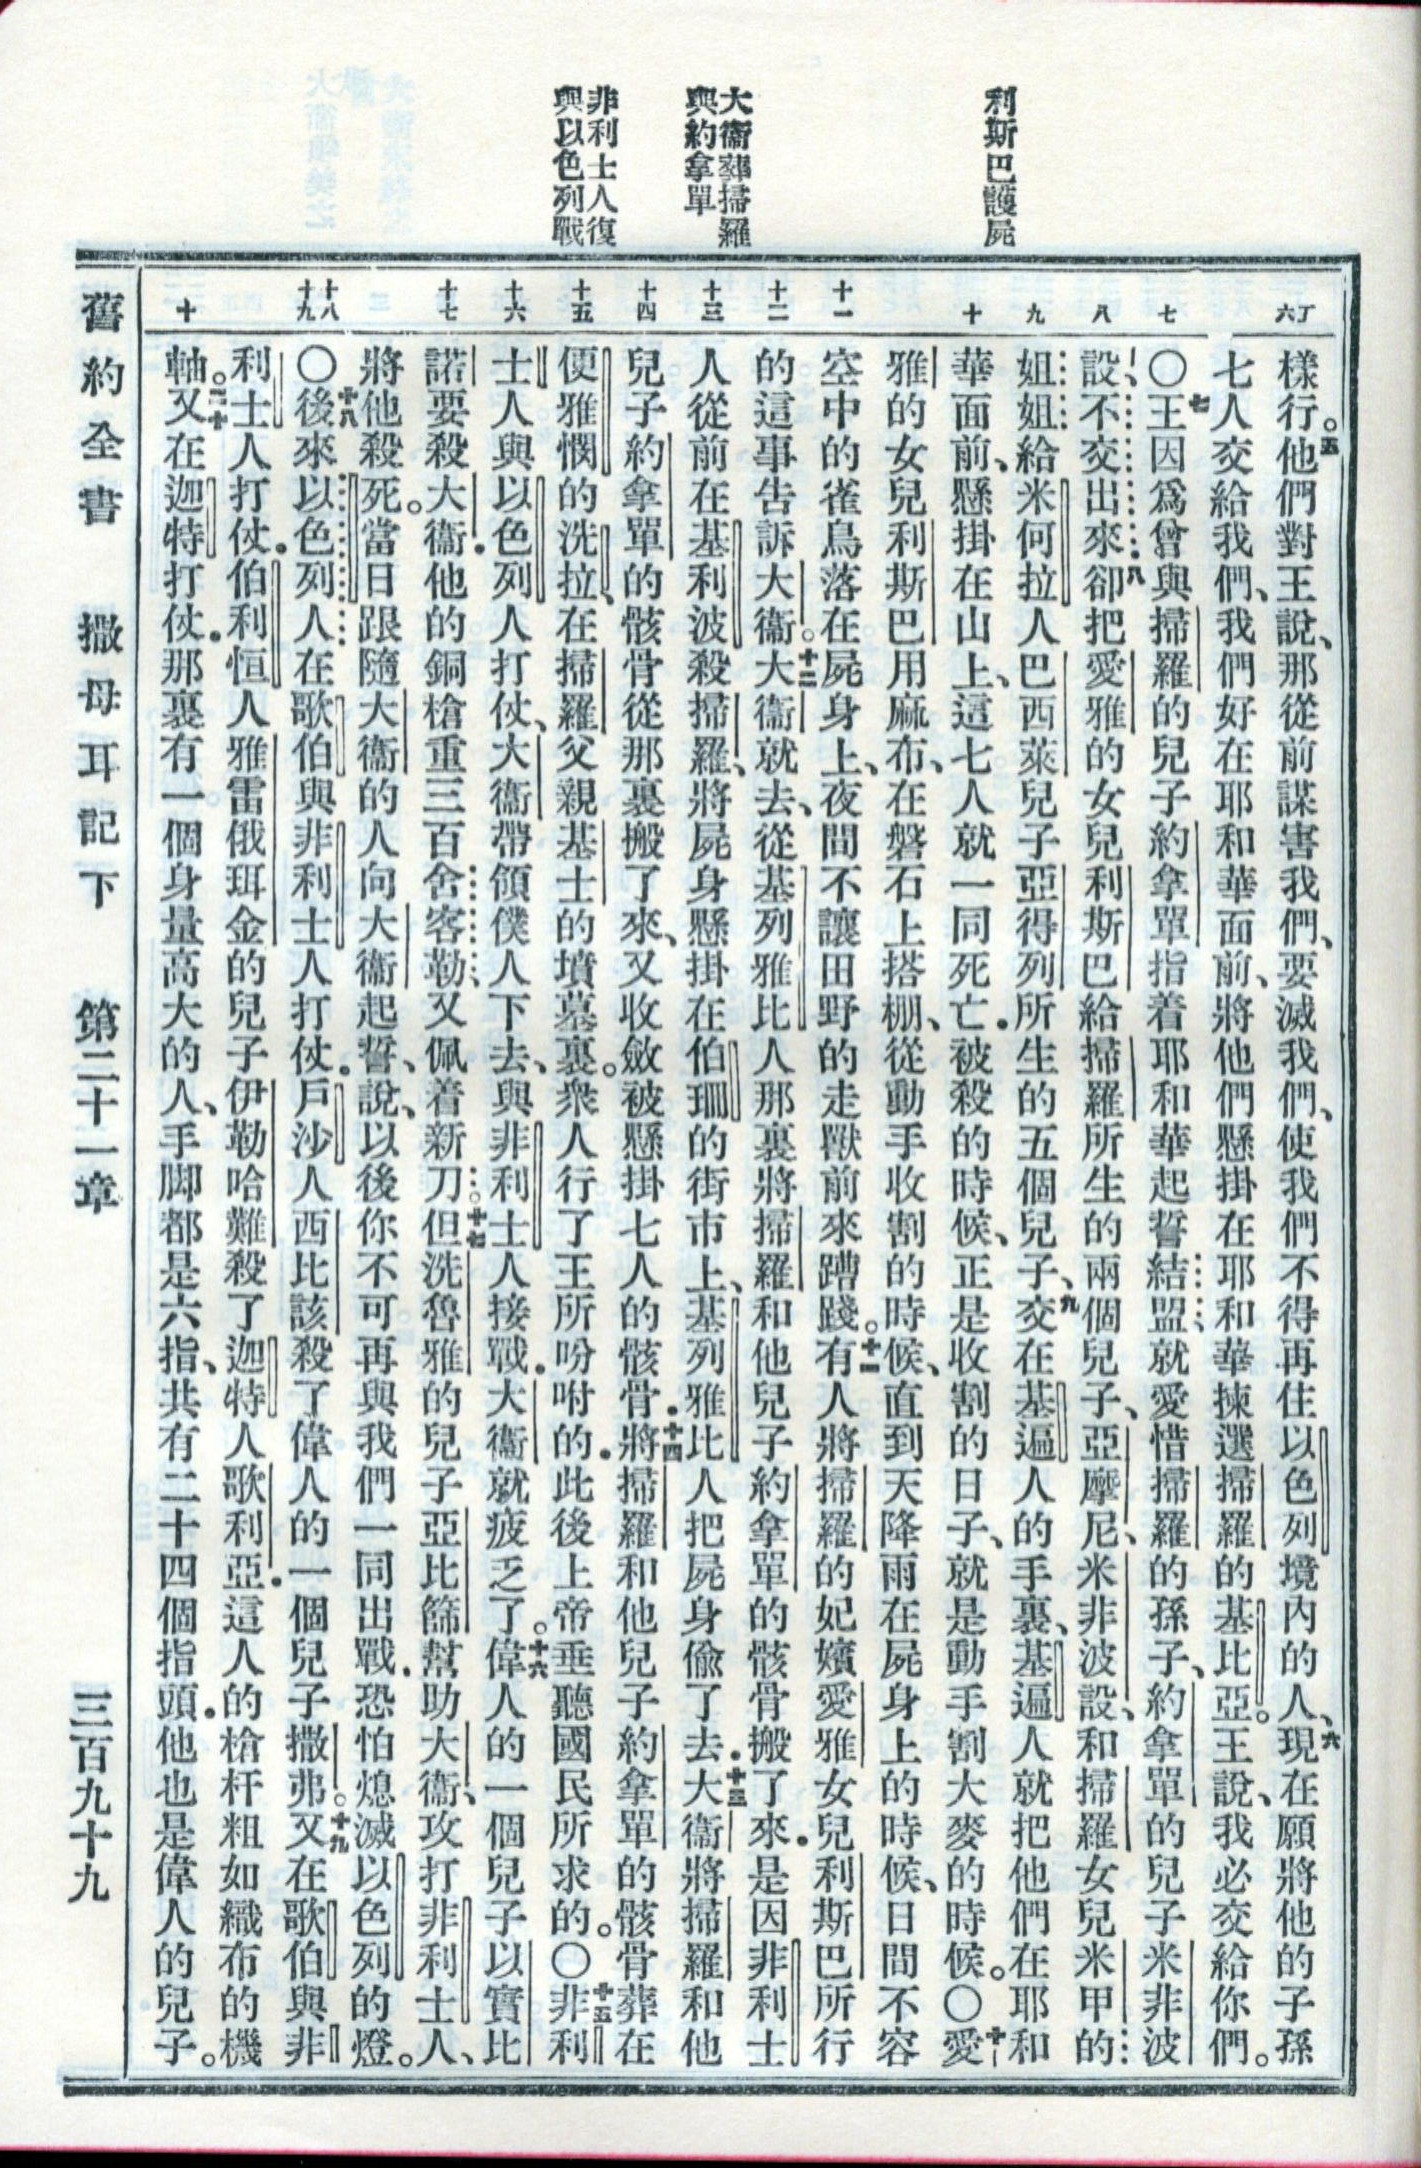 利斯巴護屍
大衞葬掃羅
與約拿單
非利士人復
與以色列戰
六
七
八
九
十
十一
十二
十三
十四
十五
十六
十七
十八
十九
十
樣行。五他們對王說、那從前謀害我們、要滅我們、使我們不得再住以色列境內的人、六現在願將他的子孫
七人交給我們、我們好在耶和華面前、將他們懸掛在耶和華揀選掃羅的基比亞。王說、我必交給你們。
〇七王因爲曾與掃羅的兒子約拿單指着耶和華起誓結盟就愛惜掃羅的孫子、約拿單的兒子米非波
設、不交出來．八卻把愛雅的女兒利斯巴給掃羅所生的兩個兒子、亞摩尼、米非波設、和掃羅女兒米甲的
姐姐給米何拉人巴西萊兒子亞得列所生的五個兒子、九交在基遍人的手裏、基遍人就把他們在耶和
華面前、懸掛在山上、這七人就一同死亡．被殺的時候、正是收割的日子、就是動手割大麥的時候。〇十愛
雅的女兒利斯巴用麻布、在磐石上搭棚、從動手收割的時候、直到天降雨在屍身上的時候、日間不容
空中的雀鳥落在屍身上、夜間不讓田野的走獸前來蹧踐。十一有人將掃羅的妃嬪愛雅女兒利斯巴所行
的這事告訴大衞。十二大衞就去、從基列雅比人那裏將掃羅和他兒子約拿單的骸骨搬了來．是因非利士
人從前在基利波殺掃羅、將屍身懸掛在伯珊的街市上、基列雅比人把屍身偷了去．十三大衞將掃羅和他
兒子約拿單的骸骨從那裏搬了來、又收斂被懸掛七人的骸骨．十四將掃羅和他兒子約拿單的骸骨葬在
便雅憫的洗拉、在掃羅父親基士的墳墓裏。衆人行了王所吩咐的．此後上帝垂聽國民所求的。〇十五非利
士人與以色列人打仗、大衞帶領僕人下去、與非利士人接戰．大衞就疲乏了。十六偉人的一個兒子以實比
諾要殺大衞．他的銅槍重三百舍客勒、又佩着新刀．十七但洗魯雅的兒子亞比篩幫助大衞、攻打非利士人、
將他殺死。當日跟隨大衞的人向大衞起誓、說、以後你不可再與我們一同出戰．恐怕熄滅以色列的燈。
〇十八後來以色列人在歌伯與非利士人打仗．戶沙人西比該殺了偉人的一個兒子撒弗。十九又在歌伯與非
利士人打仗．伯利恒人雅雷俄珥金的兒子伊勒哈難殺了迦特人歌利亞．這人的槍杆粗如織布的機
軸。二十又在迦特打仗．那裏有一個身量高大的人、手脚都是六指、共有二十四個指頭．他也是偉人的兒子。
舊約全書　撒母耳記下　第二十一章　三百九十九